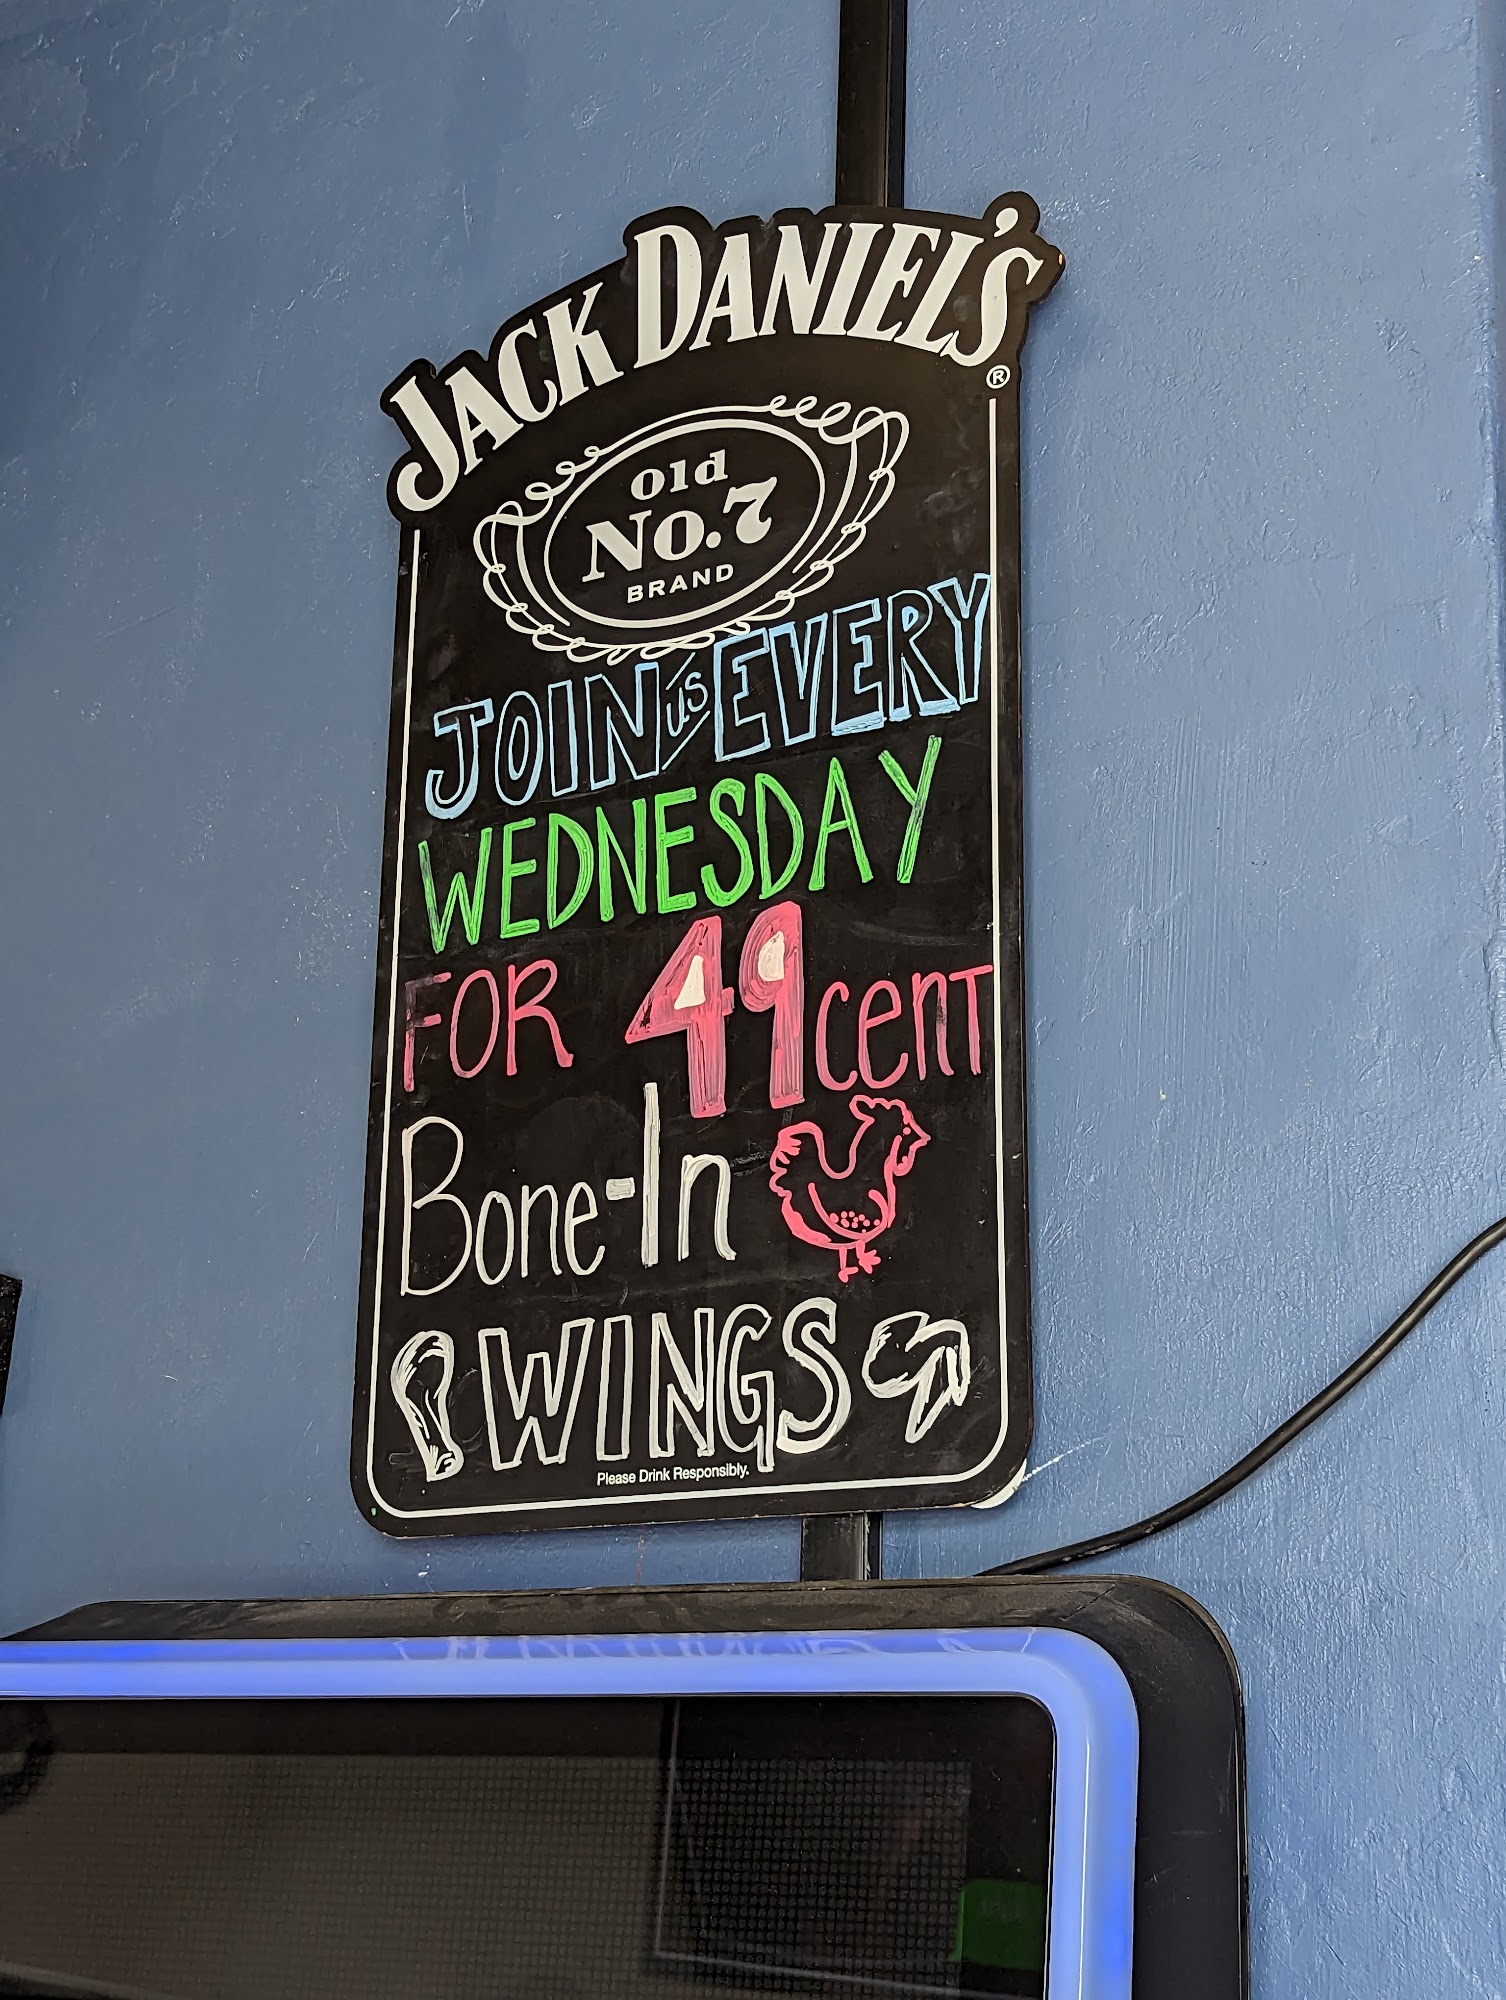 JACK DANIEL'S
®
Old
No. 7
BRAND
JOIN us EVERY
WEDNESDAY
FOR 49 cent
Bone-In
WINGS
Please Drink Responsibly.